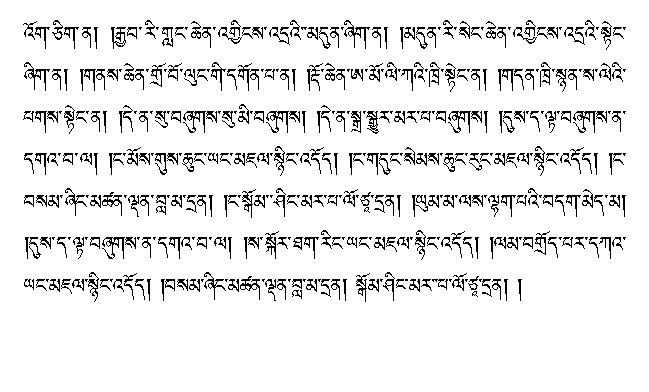 འོག་ཅིག་ན། །རྒྱབ་རི་གླང་ཆེན་འགྱིངས་འདྲའི་མདུན་ཞིག་ན། །མདུན་རི་སེང་ཆེན་འགྱིངས་འདྲའི་སྟེང་
ཞིག་ན། །གནས་ཆེན་གྲོ་བོ་ལུང་གི་དགོན་པ་ན། །རྡོ་ཆེན་ཨ་མོ་ལི་ཀའི་ཁྲི་སྟེང་ན། །གདན་ཁྲི་སྙན་ས་ལེའི་
པགས་སྟེང་ན། །དེ་ན་སུ་བཞུགས་སུ་མི་བཞུགས། །དེ་ན་སྒྲ་སྒྱུར་མར་པ་བཞུགས། །དུས་ད་ལྟ་བཞུགས་ན་
དགའ་བ་ལ། །ང་མོས་གུས་ཆུང་ཡང་མཇལ་སྙིང་འདོད། །ང་གདུང་སེམས་ཆུང་རུང་མཇལ་སྙིང་འདོད། །ང་
བསམ་ཞིང་མཚན་ལྡན་བླ་མ་དྲན། །ང་སྒོམ་ཤིང་མར་པ་ལོ་ཙཱ་དྲན། །ཡུམ་མ་ལས་ལྷག་པའི་བདག་མེད་མ།
།དུས་ད་ལྟ་བཞུགས་ན་དགའ་བ་ལ། །ས་སྐོར་ཐག་རིང་ཡང་མཇལ་སྙིང་འདོད། །ལམ་བགྲོད་པར་དཀའ་
ཡང་མཇལ་སྙིང་འདོད། །བསམ་ཞིང་མཚན་ལྡན་བླ་མ་དྲན། སྒོམ་ཤིང་མར་པ་ལོ་ཙཱ་དྲན། །